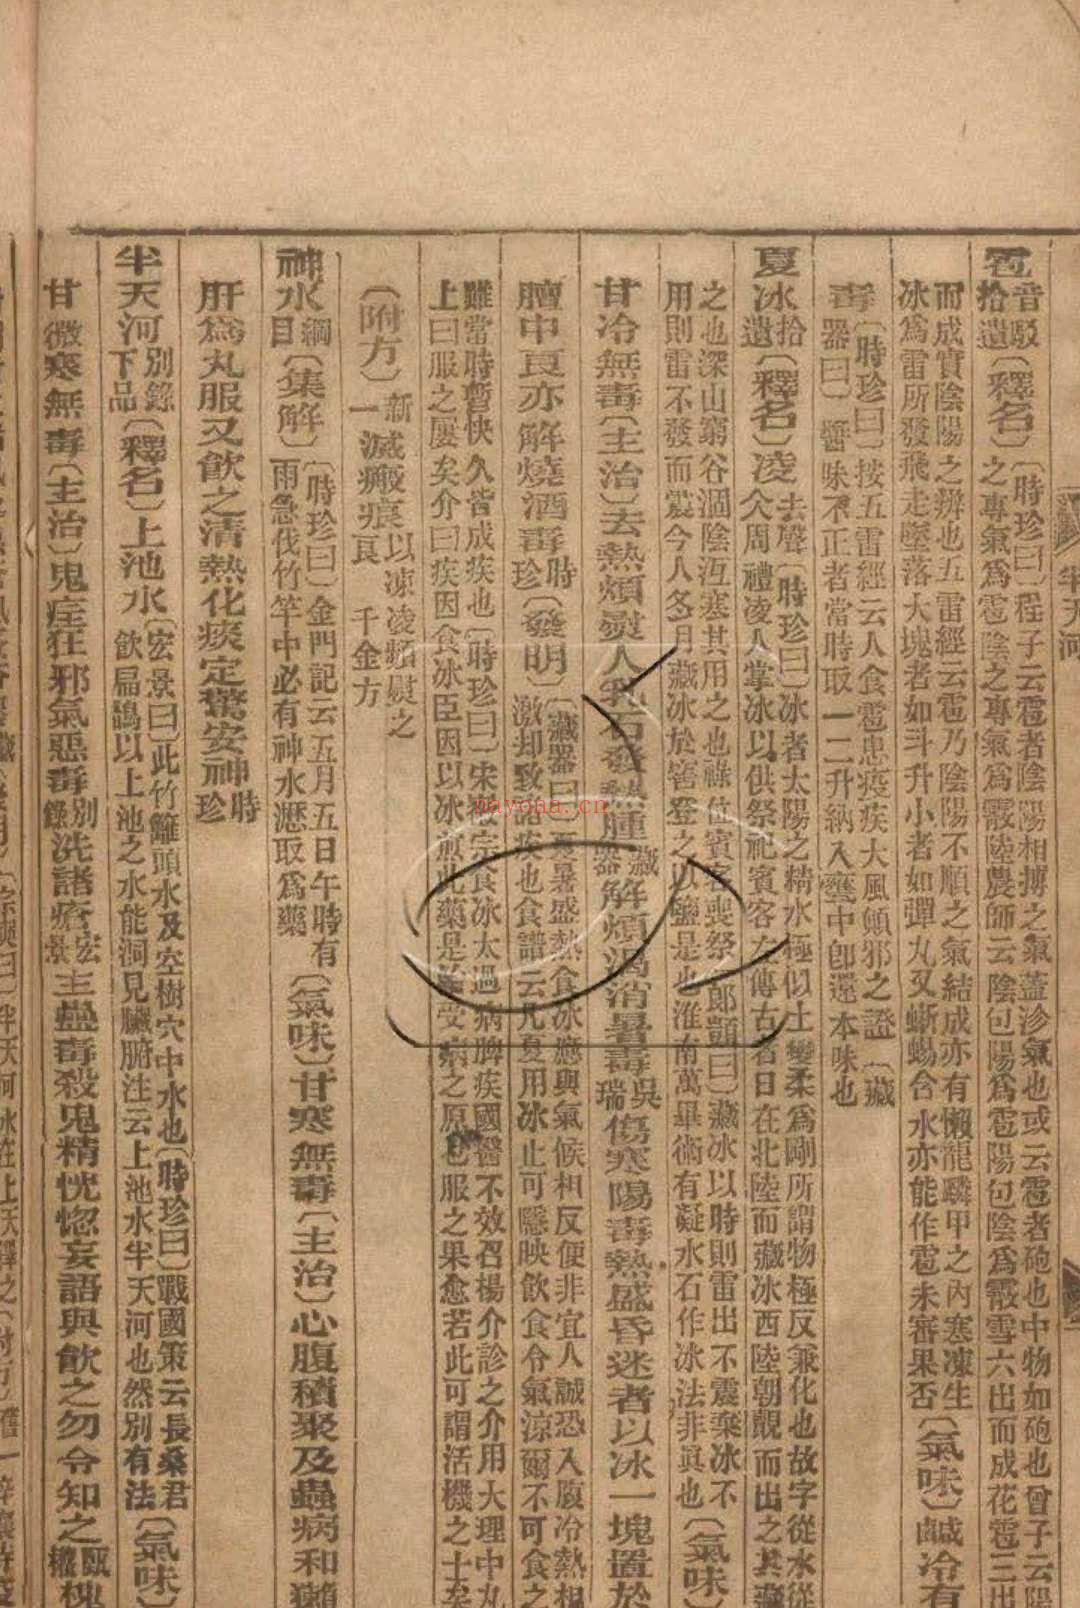 半天河
雹音駁拾遺〔釋名〕〔時珍曰〕程子云雹者陰陽相搏之氣蓋沴氣也或云雹者砲也中物如砲也曾子云陽之專氣爲雹陰之專氣爲霰陸農師云陰包陽爲雹陽包陰爲霰雪六出而成花雹三出
而成實陰陽之辨也五雷經云雹乃陰陽不順之氣結成亦有懶龍鱗甲之內寒凍生冰爲雷所發飛走墜落大塊者如斗升小者如彈丸又蜥蜴含水亦能作雹未審果否〔氣味〕鹹冷有
毒〔時珍曰〕按五雷經云人食雹患疫疾大風顛邪之證〔藏器曰〕醬味不正者當時取一二升納入甕中卽還本味也
夏冰拾遺〔釋名〕凌去聲〔時珍曰〕冰者太陽之精水極似土變柔爲剛所謂物極反兼化也故字從水從仌周禮凌人掌冰以供祭祀賓客左傳古者日在北陸而藏冰西陸朝覿而出之其藏
之也深山窮谷涸陰沍寒其用之也祿位賓客喪祭〔郎顗曰〕藏冰以時則雷出不震棄冰不用則雷不發而震今人冬月藏冰於窖登之以鹽是也淮南萬畢術有凝水石作冰法非眞也〔氣味〕
甘冷無毒〔主治〕去熱煩熨人乳石發熱腫藏器解煩渴消暑毒吳瑞傷寒陽毒熱盛昏迷者以冰一塊置於
膻中良亦解燒酒毒時珍〔發明〕〔藏器曰〕夏暑盛熱食冰應與氣候相反便非宜人誠恐入腹冷熱相激却致諸疾也食譜云凡夏用冰止可隱映飲食令氣涼爾不可食之
雖當時暫快久皆成疾也〔時珍曰〕宋徽宗食冰太過病脾疾國醫不效召楊介診之介用大理中丸上曰服之屢矣介曰疾因食冰臣因以冰煎此藥是治受病之原也服之果愈若此可謂活機之士矣
〔附方〕新一滅瘢痕以凍凌頻熨之良千金方
神水綱目〔集解〕〔時珍曰〕金門記云五月五日午時有雨急伐竹竿中必有神水瀝取爲藥〔氣味〕甘寒無毒〔主治〕心腹積聚及蟲病和獺
肝爲丸服又飮之清熱化痰定驚安神時珍
半天河別錄下品〔釋名〕上池水〔宏景曰〕此竹籬頭水及空樹穴中水也〔時珍曰〕戰國策云長桑君飮扁鵲以上池之水能洞見臟腑注云上池水半天河也然別有法〔氣味〕
甘微寒無毒〔主治〕鬼疰狂邪氣惡毒別錄洗諸瘡宏景主蠱毒殺鬼精恍惚妄語與飮之勿令知之甄權槐
nayona.cn